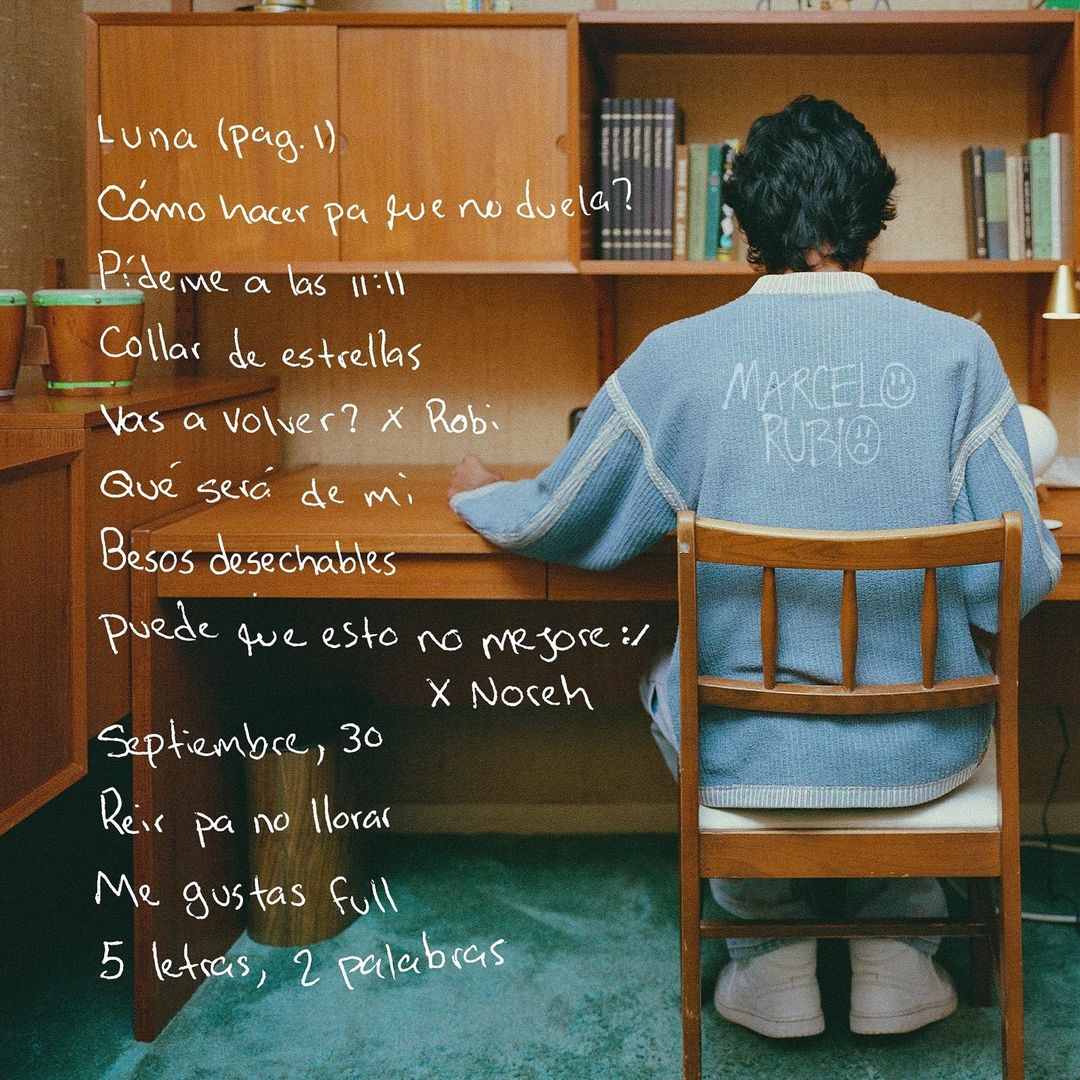 Luna (pag. 1)
Cómo hacer pa que no duela?
Pídeme a las 11:11
Collar de estrellas
Vas a volver? x Robi
Qué será de mi
Besos desechables
puede que esto no mejore :/
x Noreh
Septiembre, 30
Reir pa no llorar
Me gustas full
5 letras, 2 palabras
MARCELO
RUBIO